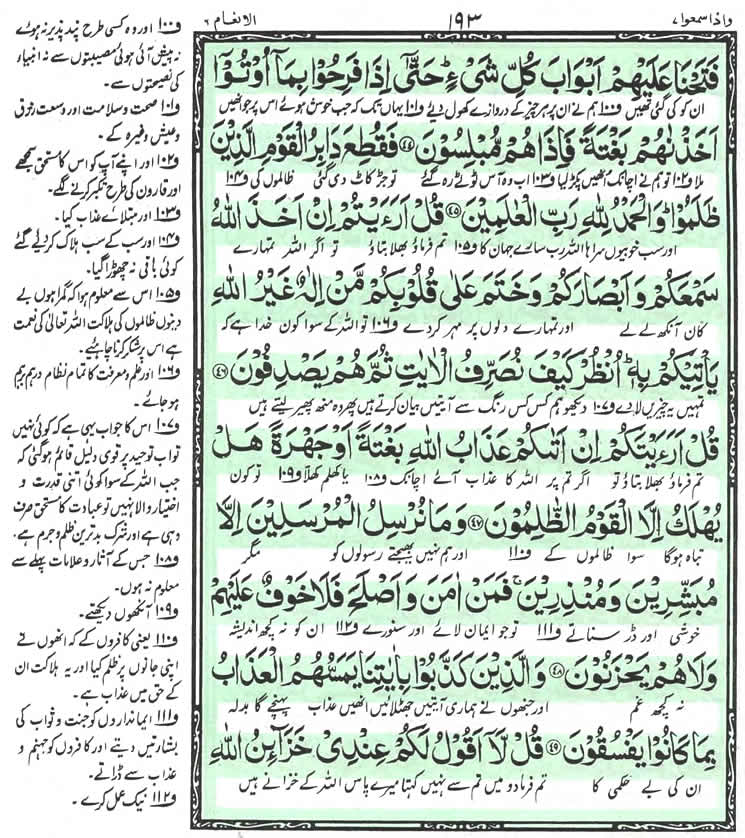 واذا سمعوا ٧
١٩٣
الانعام ٦
فَتَحْنَا عَلَيْهِمْ اَبْوَابَ كُلِّ شَیْءٍ ؕ حَتّٰۤی اِذَا فَرِحُوْا بِمَاۤ اُوْتُوْۤا
ان کو کی گئی تھیں ف۱۰۰ ہم نے ان پر ہر چیز کے دروازے کھول دیئے ف۱۰۱ یہاں تک کہ جب خوش ہوئے اس پر جو انہیں
اَخَذْنٰهُمْ بَغْتَةً فَاِذَا هُمْ مُّبْلِسُوْنَ ﴿۴۴﴾ فَقُطِعَ دَابِرُ الْقَوْمِ الَّذِیْنَ
ملا ف۱۰۲ تو ہم نے اچانک انھیں پکڑ لیا ف۱۰۳ اب وہ آس ٹوٹے رہ گئے تو جڑ کاٹ دی گئی ظالموں کی ف۱۰۴
ظَلَمُوْا ؕ وَالْحَمْدُ لِلّٰهِ رَبِّ الْعٰلَمِیْنَ ﴿۴۵﴾ قُلْ اَرَءَیْتُمْ اِنْ اَخَذَ اللّٰهُ
اور سب خوبیوں سراہا اللہ رب سارے جہان کا ف۱۰۵ تم فرماؤ بھلا بتاؤ تو اگر اللہ تمہارے
سَمْعَكُمْ وَ اَبْصَارَكُمْ وَخَتَمَ عَلٰی قُلُوْبِكُمْ مَّنْ اِلٰهٌ غَیْرُ اللّٰهِ
کان آنکھ لے لے اور تمہارے دلوں پر مہر کر دے ف۱۰۶ تو اللہ کے سوا کون خدا ہے کہ
یَاْتِیْكُمْ بِهٖ ؕ اُنْظُرْ كَیْفَ نُصَرِّفُ الْاٰیٰتِ ثُمَّ هُمْ یَصْدِفُوْنَ ﴿۴۶﴾
تمہیں یہ چیزیں لا دے ف۱۰۷ دیکھو ہم کس کس رنگ سے آیتیں بیان کرتے ہیں پھر وہ منھ پھیر لیتے ہیں
قُلْ اَرَءَیْتَكُمْ اِنْ اَتٰىكُمْ عَذَابُ اللّٰهِ بَغْتَةً اَوْ جَهْرَةً هَلْ
تم فرماؤ بھلا بتاؤ تو اگر تم پر اللہ کا عذاب آئے اچانک ف۱۰۸ یا کھلم کھلا ف۱۰۹ تو کون
یُهْلَكُ اِلَّا الْقَوْمُ الظّٰلِمُوْنَ ﴿۴۷﴾ وَمَا نُرْسِلُ الْمُرْسَلِیْنَ اِلَّا
تباہ ہوگا سوا ظالموں کے ف۱۱۰ اور ہم نہیں بھیجتے رسولوں کو مگر
مُبَشِّرِیْنَ وَمُنْذِرِیْنَ ۚ فَمَنْ اٰمَنَ وَ اَصْلَحَ فَلَا خَوْفٌ عَلَیْهِمْ
خوشی اور ڈر سناتے ف۱۱۱ تو جو ایمان لائے اور سنورے ف۱۱۲ ان کو نہ کچھ اندیشہ
وَلَا هُمْ یَحْزَنُوْنَ ﴿۴۸﴾ وَالَّذِیْنَ كَذَّبُوْا بِاٰیٰتِنَا یَمَسُّهُمُ الْعَذَابُ
نہ کچھ غم اور جنھوں نے ہماری آیتیں جھٹلائیں انھیں عذاب پہنچے گا بدلہ
بِمَا كَانُوْا یَفْسُقُوْنَ ﴿۴۹﴾ قُلْ لَّاۤ اَقُوْلُ لَكُمْ عِنْدِیْ خَزَآئِنُ اللّٰهِ
ان کی بے حکمی کا تم فرما دو میں تم سے نہیں کہتا میرے پاس اللہ کے خزانے ہیں
ف۱۰۰ اور وہ کسی طرح پند پذیر نہ ہوئے
نہ پیش آئی ہوئی مصیبتوں سے نہ انبیاء
کی نصیحتوں سے۔
ف۱۰۱ صحت و سلامت اور وسعت رزق
و عیش وغیرہ کے۔
ف۱۰۲ اور اپنے آپ کو اس کا مستحق سمجھے
اور قارون کی طرح تکبر کرنے لگے۔
ف۱۰۳ اور مبتلائے عذاب کیا۔
ف۱۰۴ اور سب کے سب ہلاک کر دئے گئے
کوئی باقی نہ چھوڑا گیا۔
ف۱۰۵ اس سے معلوم ہوا کہ گمراہوں بے
دینوں ظالموں کی ہلاکت اللہ تعالیٰ کی نعمت
ہے اس پر شکر کرنا چاہئے۔
ف۱۰۶ اور علم و معرفت کا تمام نظام درہم برہم
ہو جائے۔
ف۱۰۷ اس کا جواب یہی ہے کہ کوئی نہیں
تو اب توحید پر قوی دلیل قائم ہوگئی کہ
جب اللہ کے سوا کوئی اتنی قدرت و
اختیار والا نہیں تو عبادت کا مستحق صرف
وہی ہے اور شرک بدترین ظلم و جرم ہے۔
ف۱۰۸ جس کے آثار و علامات پہلے سے
معلوم نہ ہوں۔
ف۱۰۹ آنکھوں دیکھتے۔
ف۱۱۰ یعنی کافروں کے کہ انھوں نے
اپنی جانوں پر ظلم کیا اور یہ ہلاکت ان
کے حق میں عذاب ہے۔
ف۱۱۱ ایمانداروں کو جنت و ثواب کی
بشارتیں دیتے اور کافروں کو جہنم و
عذاب سے ڈراتے۔
ف۱۱۲ نیک عمل کرے۔